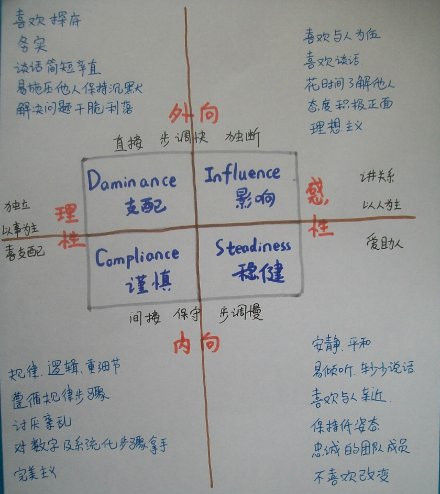 喜欢探存
务实
谈话简短率直
易施压他人保持沉默
解决问题干脆利落
喜欢与人为伍
喜欢谈话
花时间了解他人
态度积极正面
理想主义
外向
直接 步调快 独断
Daminance
支配
Influence
影响
独立
以事为主
喜支配
理性
感性
讲关系
以人为主
爱助人
Compliance
谨慎
Steadiness
稳健
间接 保守 步调慢
内向
规律、逻辑、重细节
遵循规律步骤
讨厌杂乱
对数字及系统化步骤拿手
完美主义
安静、平和
易倾听、较少说话
喜欢与人亲近
保持低姿态
忠诚的团队成员
不喜欢改变